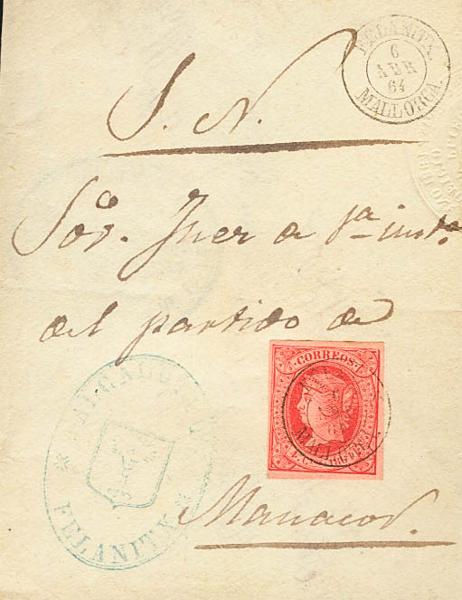 FELANITX.
6
ABR
64
MALLORCA.
S. N.
Sor. Juez de 1ª insta.
del partido de
CORREOS
Manacor.
ALCALDIA
FELANITX